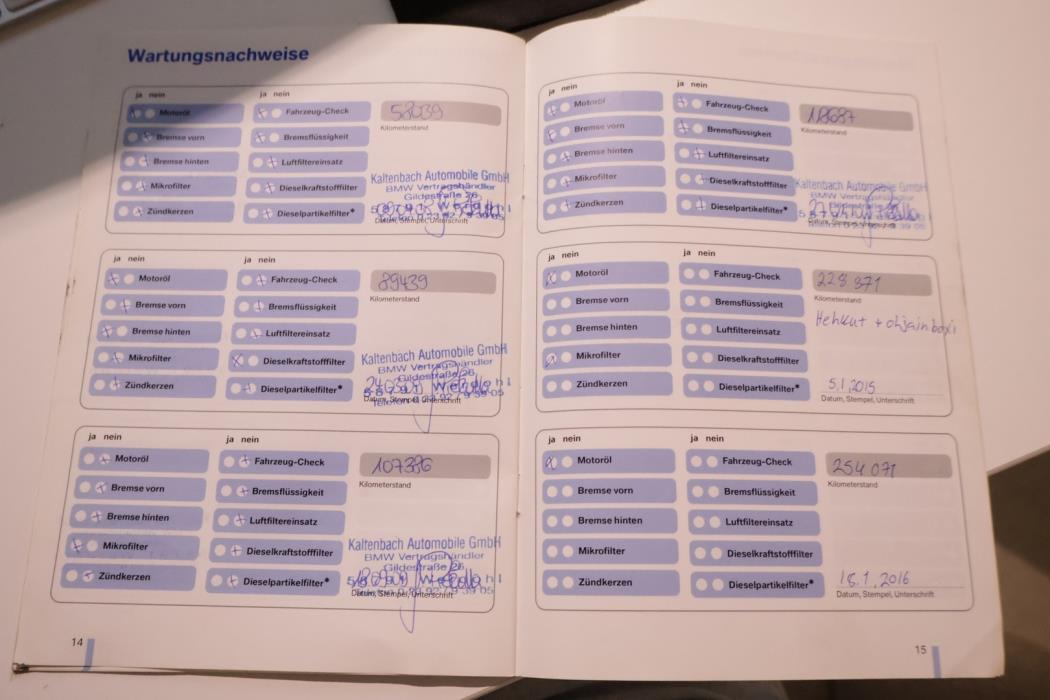 Wartungsnachweise
ja nein ja nein
Motoröl Fahrzeug-Check 58039
Kilometerstand
Bremse vorn Bremsflüssigkeit
Bremse hinten Luftfiltereinsatz
Mikrofilter Dieselkraftstofffilter
Zündkerzen Dieselpartikelfilter*
Kaltenbach Automobile GmbH
BMW Vertragshändler
Gildestraße 26
Datum, Stempel, Unterschrift
ja nein ja nein
Motoröl Fahrzeug-Check 89439
Kilometerstand
Bremse vorn Bremsflüssigkeit
Bremse hinten Luftfiltereinsatz
Mikrofilter Dieselkraftstofffilter
Zündkerzen Dieselpartikelfilter*
Kaltenbach Automobile GmbH
BMW Vertragshändler
Gildestraße 26
Datum, Stempel, Unterschrift
ja nein ja nein
Motoröl Fahrzeug-Check 107386
Kilometerstand
Bremse vorn Bremsflüssigkeit
Bremse hinten Luftfiltereinsatz
Mikrofilter Dieselkraftstofffilter
Zündkerzen Dieselpartikelfilter*
Kaltenbach Automobile GmbH
BMW Vertragshändler
Gildestraße 26
Datum, Stempel, Unterschrift
14
ja nein ja nein
Motoröl Fahrzeug-Check
Kilometerstand
Bremse vorn Bremsflüssigkeit
Bremse hinten Luftfiltereinsatz
Mikrofilter Dieselkraftstofffilter
Zündkerzen Dieselpartikelfilter*
Kaltenbach Automobile GmbH
BMW Vertragshändler
Datum, Stempel, Unterschrift
ja nein ja nein
Motoröl Fahrzeug-Check 228 871
Kilometerstand
Bremse vorn Bremsflüssigkeit
Hehkut + ohjainboxi
Bremse hinten Luftfiltereinsatz
Mikrofilter Dieselkraftstofffilter
Zündkerzen Dieselpartikelfilter*
5.1.2015
Datum, Stempel, Unterschrift
ja nein ja nein
Motoröl Fahrzeug-Check 254 071
Kilometerstand
Bremse vorn Bremsflüssigkeit
Bremse hinten Luftfiltereinsatz
Mikrofilter Dieselkraftstofffilter
Zündkerzen Dieselpartikelfilter*
Datum, Stempel, Unterschrift
15